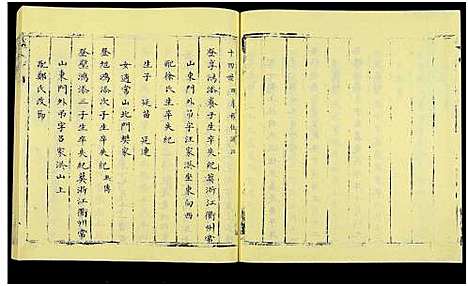 十四世
登享鴻添長子生卒失紀葬浙江衢州常
山東門外吊字汪家洪坐東向西
配徐氏生卒失紀
生子 廷苗 廷連
女適常山北門樊家
登旭鴻添次子生卒失紀
登壁鴻添三子生卒失紀葬浙江衢州常
山東門外吊字呂家洪山上
配鄭氏改節